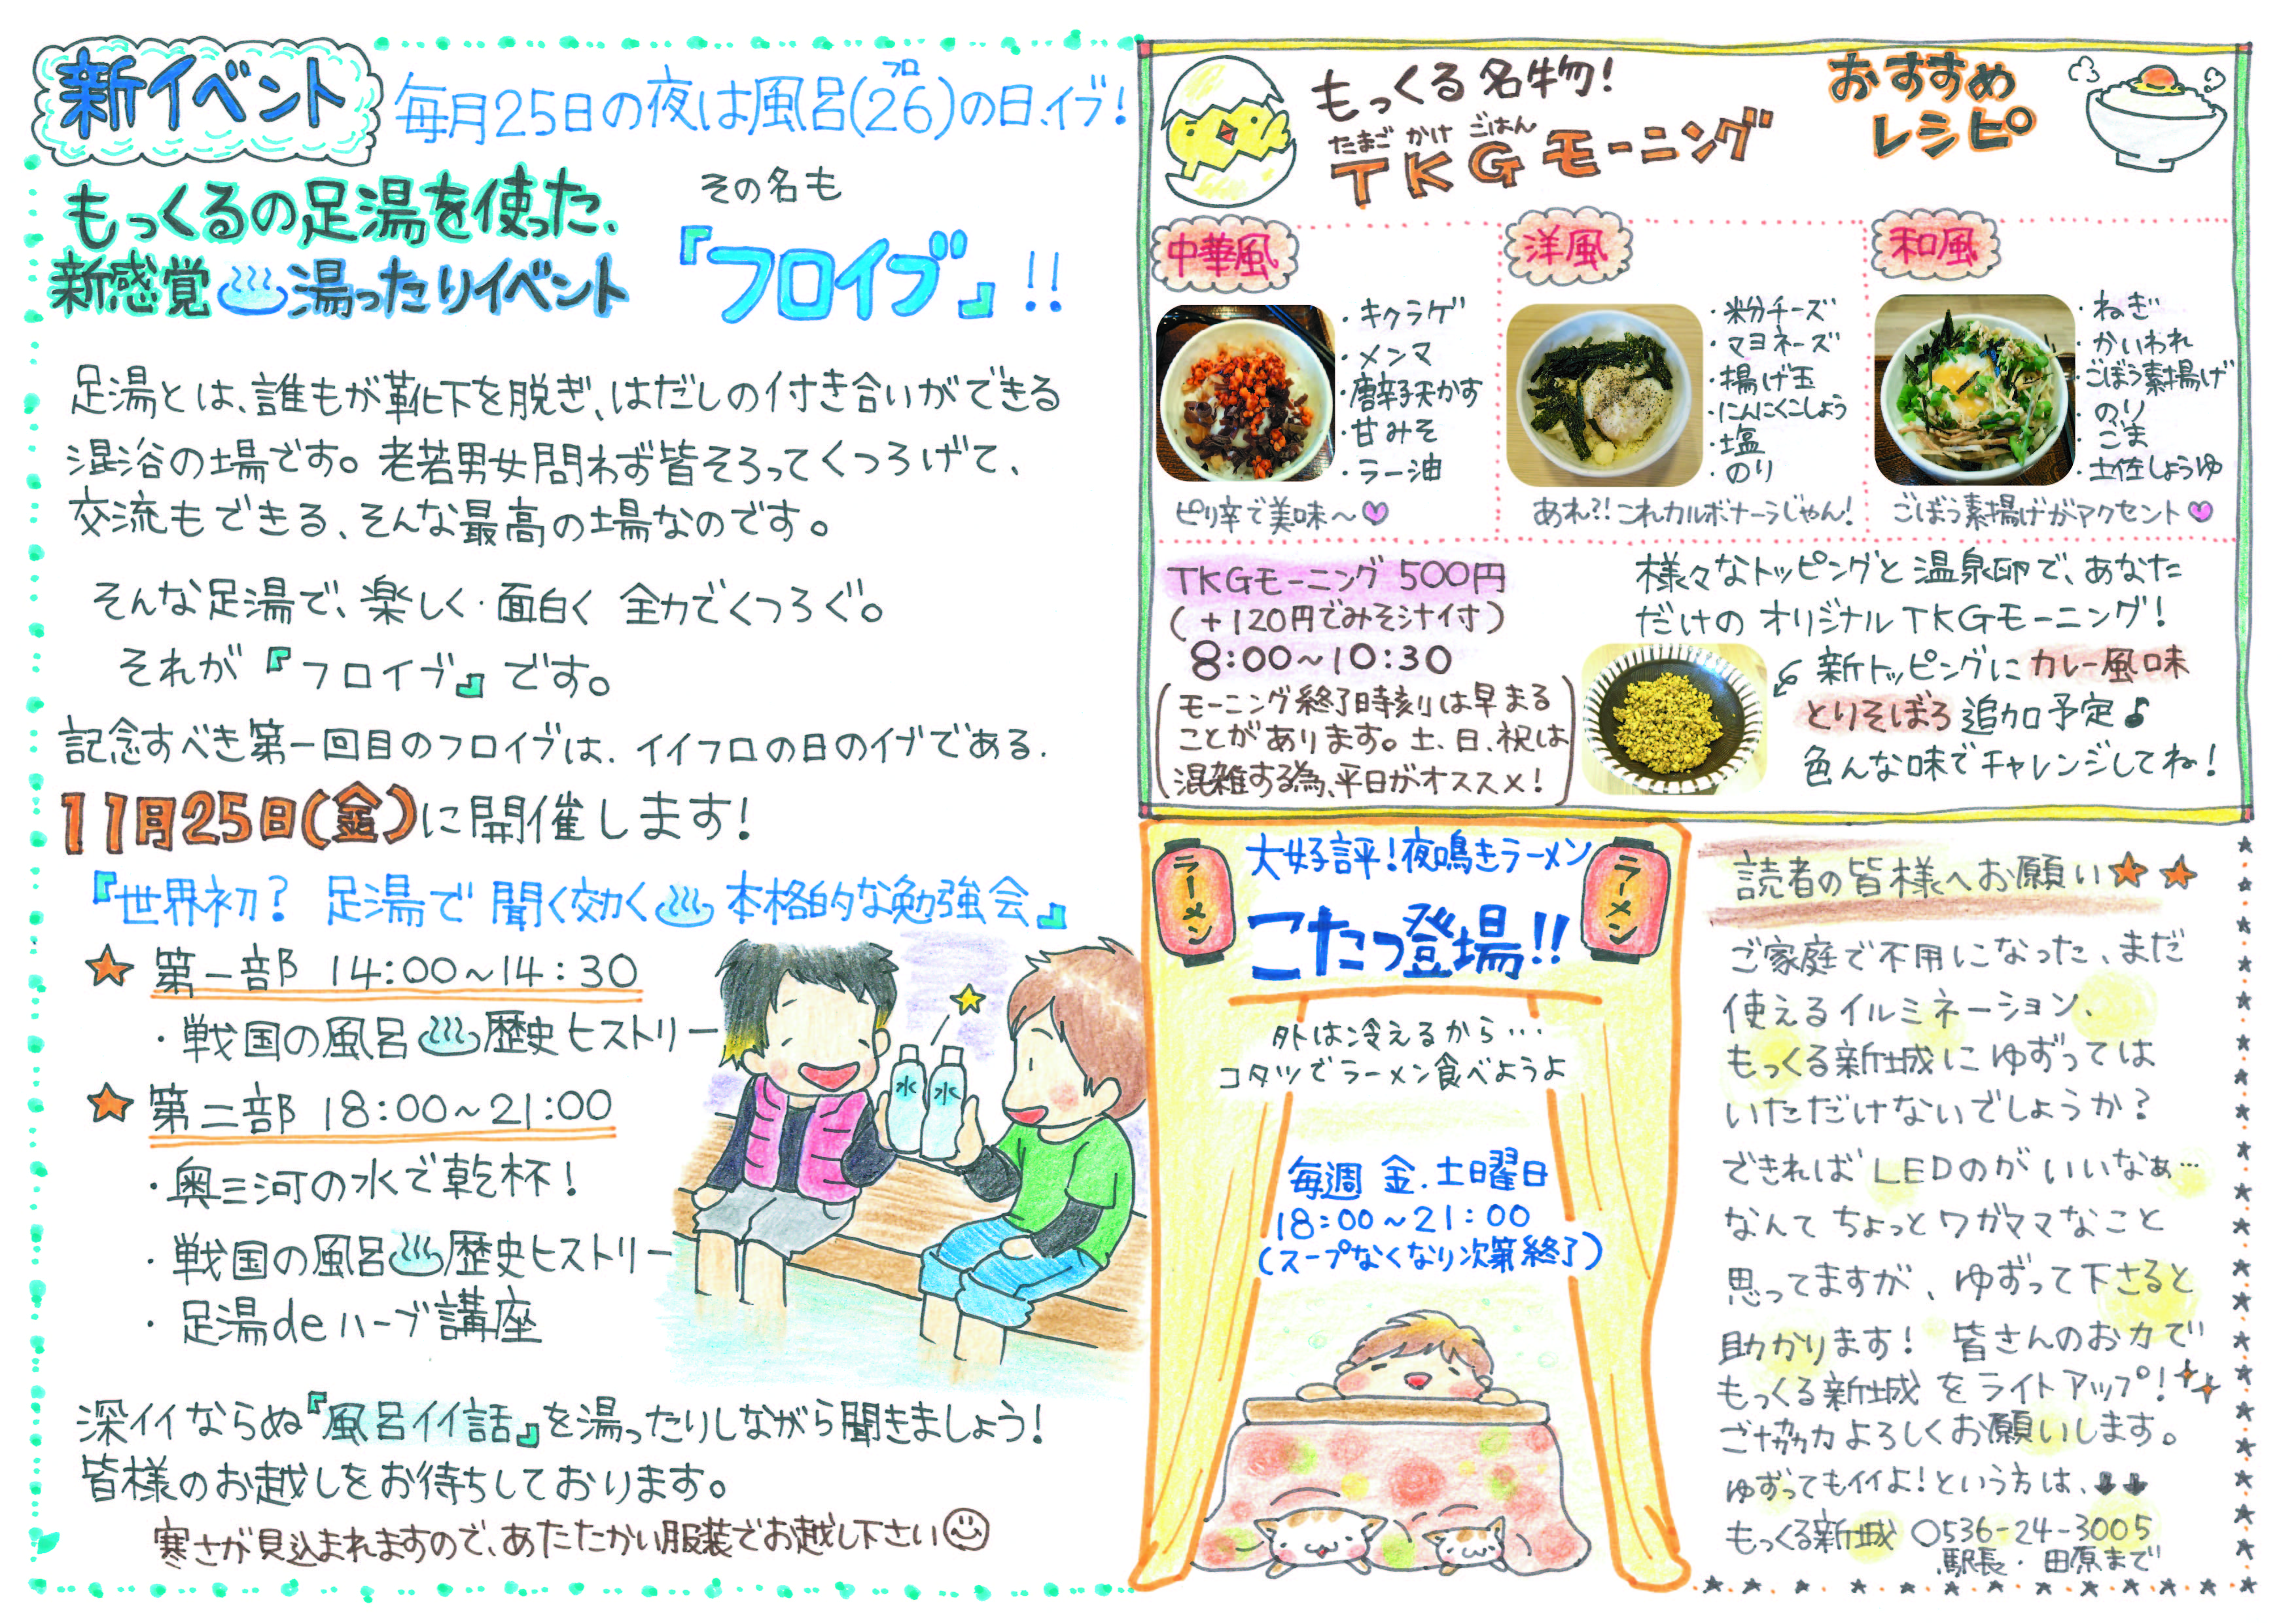 新イベント
毎月25日の夜は風呂(26)の日、イブ!
フロ
もっくるの足湯を使った、
新感覚♨湯ったりイベント
その名も
『フロイブ』!!
足湯とは、誰もが靴下を脱ぎ、はだしの付き合いができる
混浴の場です。老若男女問わず皆そろってくつろげて、
交流もできる、そんな最高の場なのです。
そんな足湯で、楽しく・面白く 全力でくつろぐ。
それが『フロイブ』です。
記念すべき第一回目のフロイブは、イイフロの日のイブである、
11月25日(金)に開催します!
『世界初? 足湯で 聞く効く♨本格的な勉強会』
★ 第一部 14:00~14:30
・戦国の風呂♨歴史ヒストリー
★ 第二部 18:00~21:00
・奥三河の水で乾杯!
・戦国の風呂♨歴史ヒストリー
・足湯deハーブ講座
水 水
深イイならぬ『風呂イイ話』を湯ったりしながら聞きましょう!
皆様のお越しをお待ちしております。
寒さが見込まれますので、あたたかい服装でお越し下さい☺
もっくる名物!
たまご かけ ごはん
TKGモーニング
おすすめ
レシピ
中華風
・キクラゲ
・メンマ
・唐辛子天かす
・甘みそ
・ラー油
ピリ辛で美味~♥
洋風
・粉チーズ
・マヨネーズ
・揚げ玉
・にんにくこしょう
・塩
・のり
あれ?!これカルボナーラじゃん!
和風
・ねぎ
・かいわれ
・ごぼう素揚げ
・のり
・ごま
・土佐しょうゆ
ごぼう素揚げがアクセント♥
TKGモーニング 500円
(+120円でみそ汁付)
8:00~10:30
(モーニング終了時刻は早まる
ことがあります。土、日、祝は
混雑する為、平日がオススメ!)
様々なトッピングと温泉卵で、あなた
だけの オリジナルTKGモーニング!
新トッピングにカレー風味
とりそぼろ追加予定♪
色んな味でチャレンジしてね!
ラーメン
大好評!夜鳴きラーメン
こたつ登場!!
ラーメン
外は冷えるから…
コタツでラーメン食べようよ
毎週 金.土曜日
18:00~21:00
(スープなくなり次第終了)
読者の皆様へお願い★★
ご家庭で不用になった、まだ
使えるイルミネーション、
もっくる新城にゆずっては
いただけないでしょうか?
できればLEDのがいいなぁ…
なんてちょっとワガママなこと
思ってますが、ゆずって下さると
助かります! 皆さんのお力で
もっくる新城をライトアップ!
ご協力よろしくお願いします。
ゆずってもイイよ!という方は、↓↓
もっくる新城 0536-24-3005
駅長・田原まで